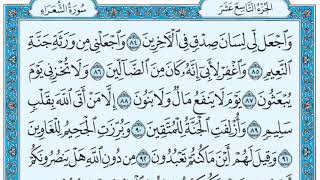 الجزء التاسع عشر
سورة الشعراء
وَٱجْعَل لِّي لِسَانَ صِدْقٍ فِي ٱلْآخِرِينَ ٨٤ وَٱجْعَلْنِي مِن وَرَثَةِ جَنَّةِ
ٱلنَّعِيمِ ٨٥ وَٱغْفِرْ لِأَبِي إِنَّهُ كَانَ مِنَ ٱلضَّالِّينَ ٨٦ وَلَا تُخْزِنِي يَوْمَ
يُبْعَثُونَ ٨٧ يَوْمَ لَا يَنفَعُ مَالٌ وَلَا بَنُونَ ٨٨ إِلَّا مَنْ أَتَى ٱللَّهَ بِقَلْبٍ
سَلِيمٍ ٨٩ وَأُزْلِفَتِ ٱلْجَنَّةُ لِلْمُتَّقِينَ ٩٠ وَبُرِّزَتِ ٱلْجَحِيمُ لِلْغَاوِينَ
٩١ وَقِيلَ لَهُمْ أَيْنَ مَا كُنتُمْ تَعْبُدُونَ ٩٢ مِن دُونِ ٱللَّهِ هَلْ يَنصُرُونَكُمْ